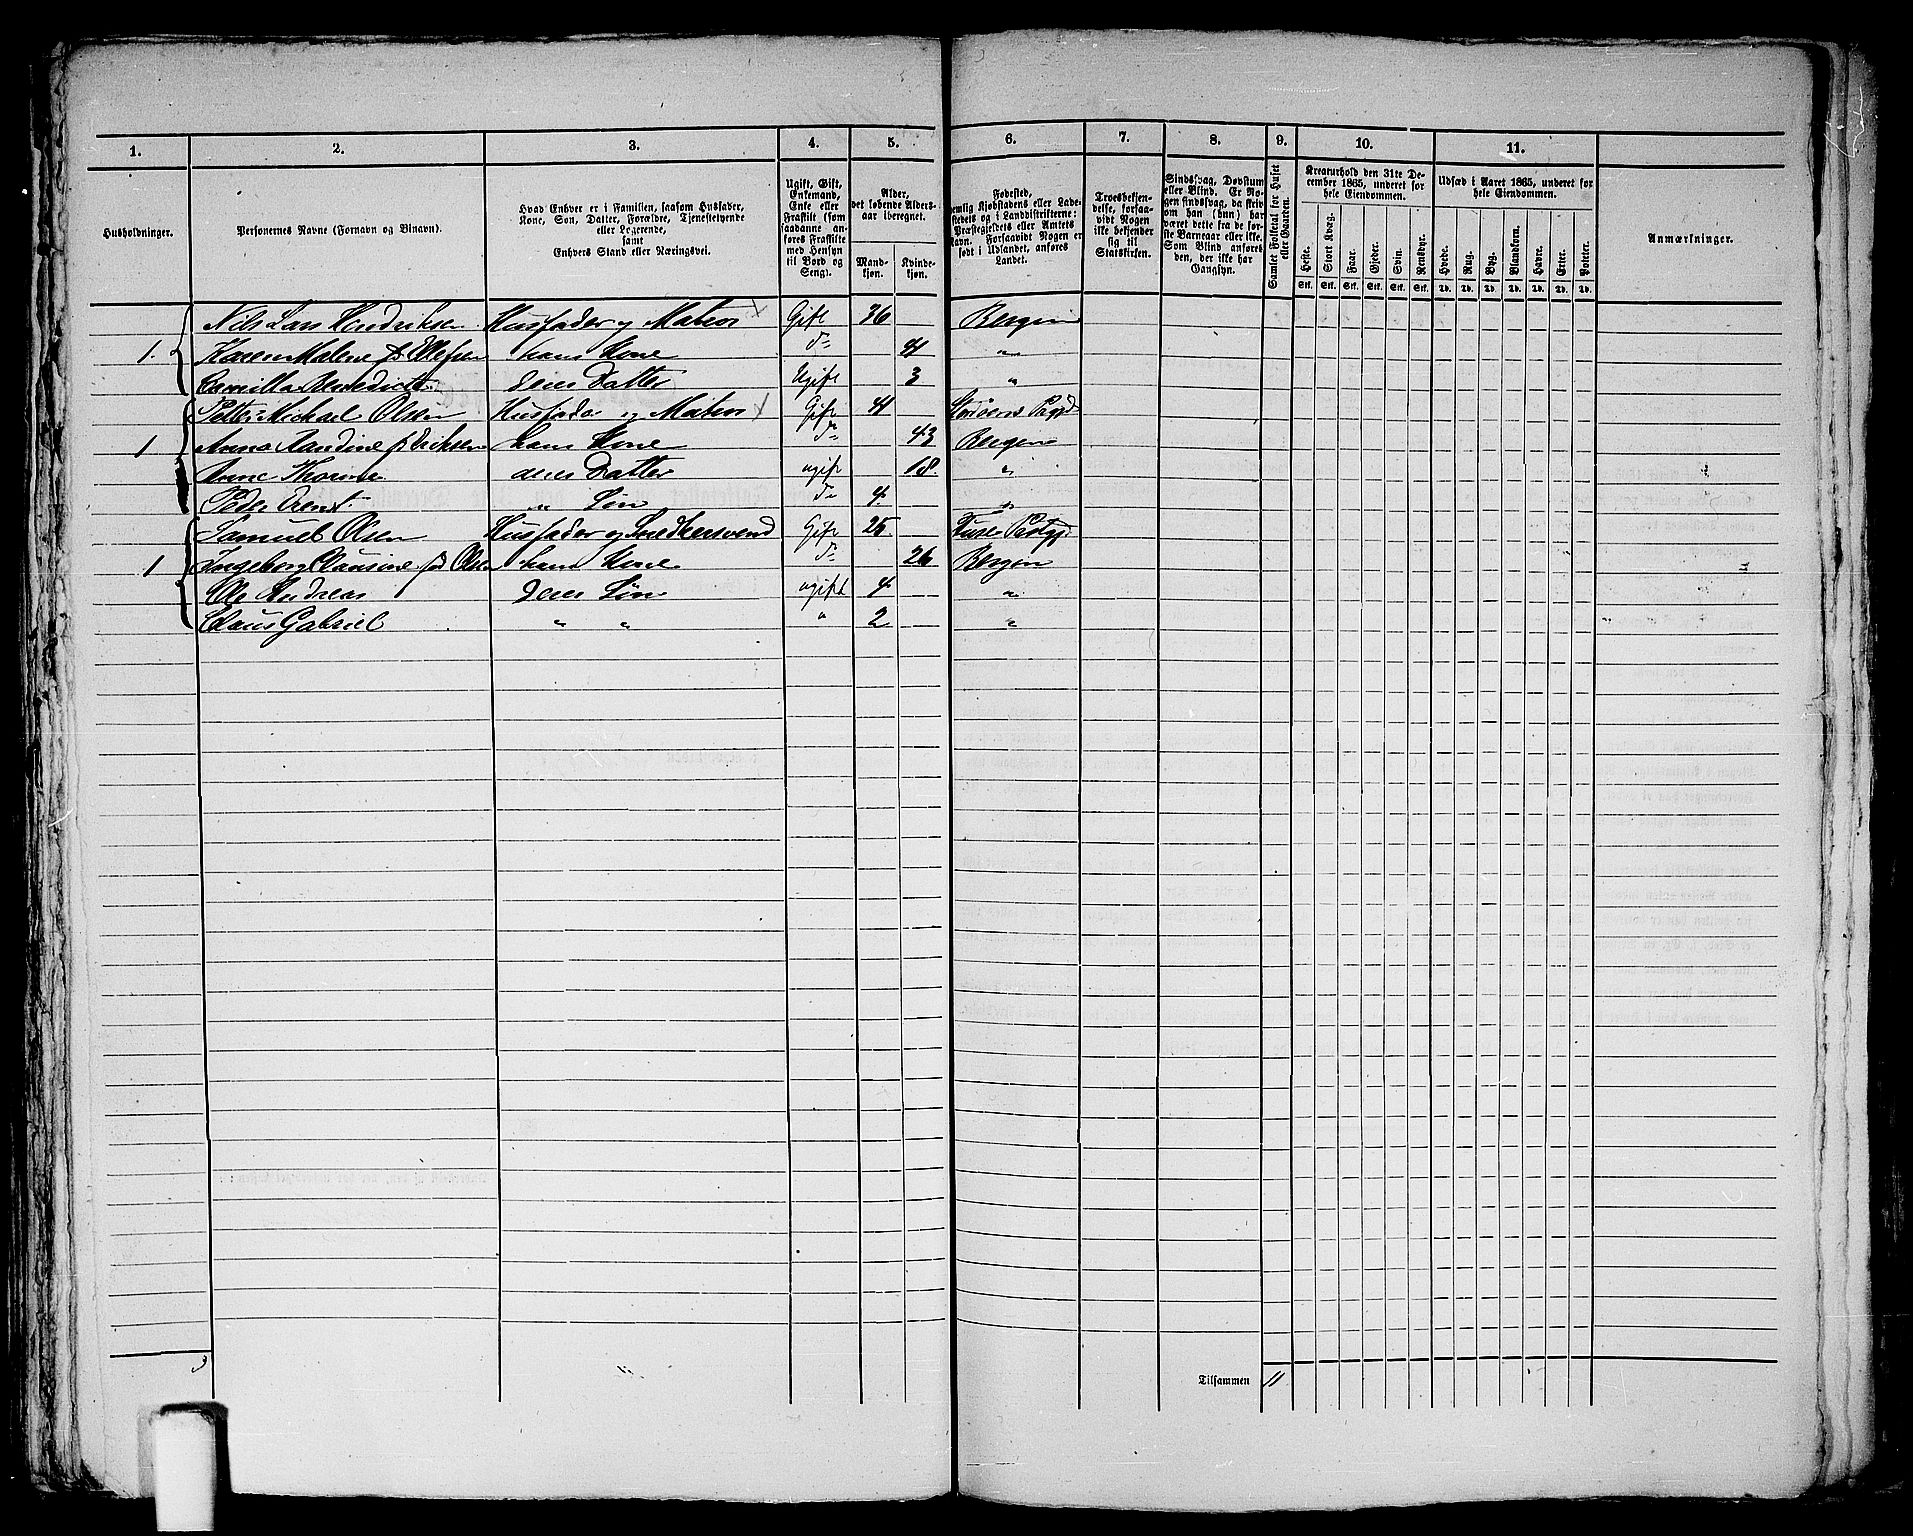 1. 2. 3. 4. 5. 6. 7. 8. 9. 10. 11.
Husholdninger.
Personernes Navne (Fornavn og Binavn).
Hvad Enhver er i Familien, saasom Husfader, Kone, Søn, Datter, Forældre, Tjenestetyende eller Logerende, samt Enhvers Stand eller Næringsvei.
Ugift, Gift, Enkemand, Enke eller Fraskilt (som saadanne anføres Fraskilte med Hensyn til Bord og Seng).
Alder, det løbende Alders-aar iberegnet.
Mandkjøn. Kvindekjøn.
Fødested, nemlig Kjøbstadens eller Ladestedets og i Landdistrikterne: Præstegjeldets eller Amtets Navn. Forsaavidt Nogen er født i Udlandet, anføres Landet.
Troesbekjendelse, forsaavidt Nogen ikke bekjender sig til Statskirken.
Sindssvag, Døvstum eller Blind. Er Nogen sindssvag, da skrives om han (hun) har været dette fra de første Barneaar eller ikke. Som Blind anføres den, der ikke har Gangsyn.
Samlet Folketal for Huset eller Gaarden.
Kreaturhold den 31te December 1865, underet for hele Eiendommen.
Heste. Stort Kvæg. Faar. Gjeder. Svin. Rensdyr.
Udsæd i Aaret 1865, underet for hele Eiendommen.
Hvede. Rug. Byg. Blandkorn. Havre. Erter. Poteter.
Anmærkninger.
Stk. Stk. Stk. Stk. Stk. Stk. Td. Td. Td. Td. Td. Td. Td.
Nils Lars Hendriksen Husfader og Matros Gift 36 Bergen
1. Karen Malene f. Ellefsen hans Kone do 41 "
Camilla Benedicte deres Datter Ugift 3 "
Petter Michael Olsen Husfader og Matros Gift 41
1 Anna Randine f. Eriksen hans Kone do 43 Bergen
Anne Thorine deres Datter ugift 18 "
Peder Arent " Søn do 4. "
Samuel Olsen Husfader og Snedkersvend Gift 25
1 Ingeborg Clausine fd Olsen hans Kone do 26 Bergen
Ole Andreas deres Søn ugift 4 "
Claus Gabriel " " " 2 "
3
Tilsammen 11